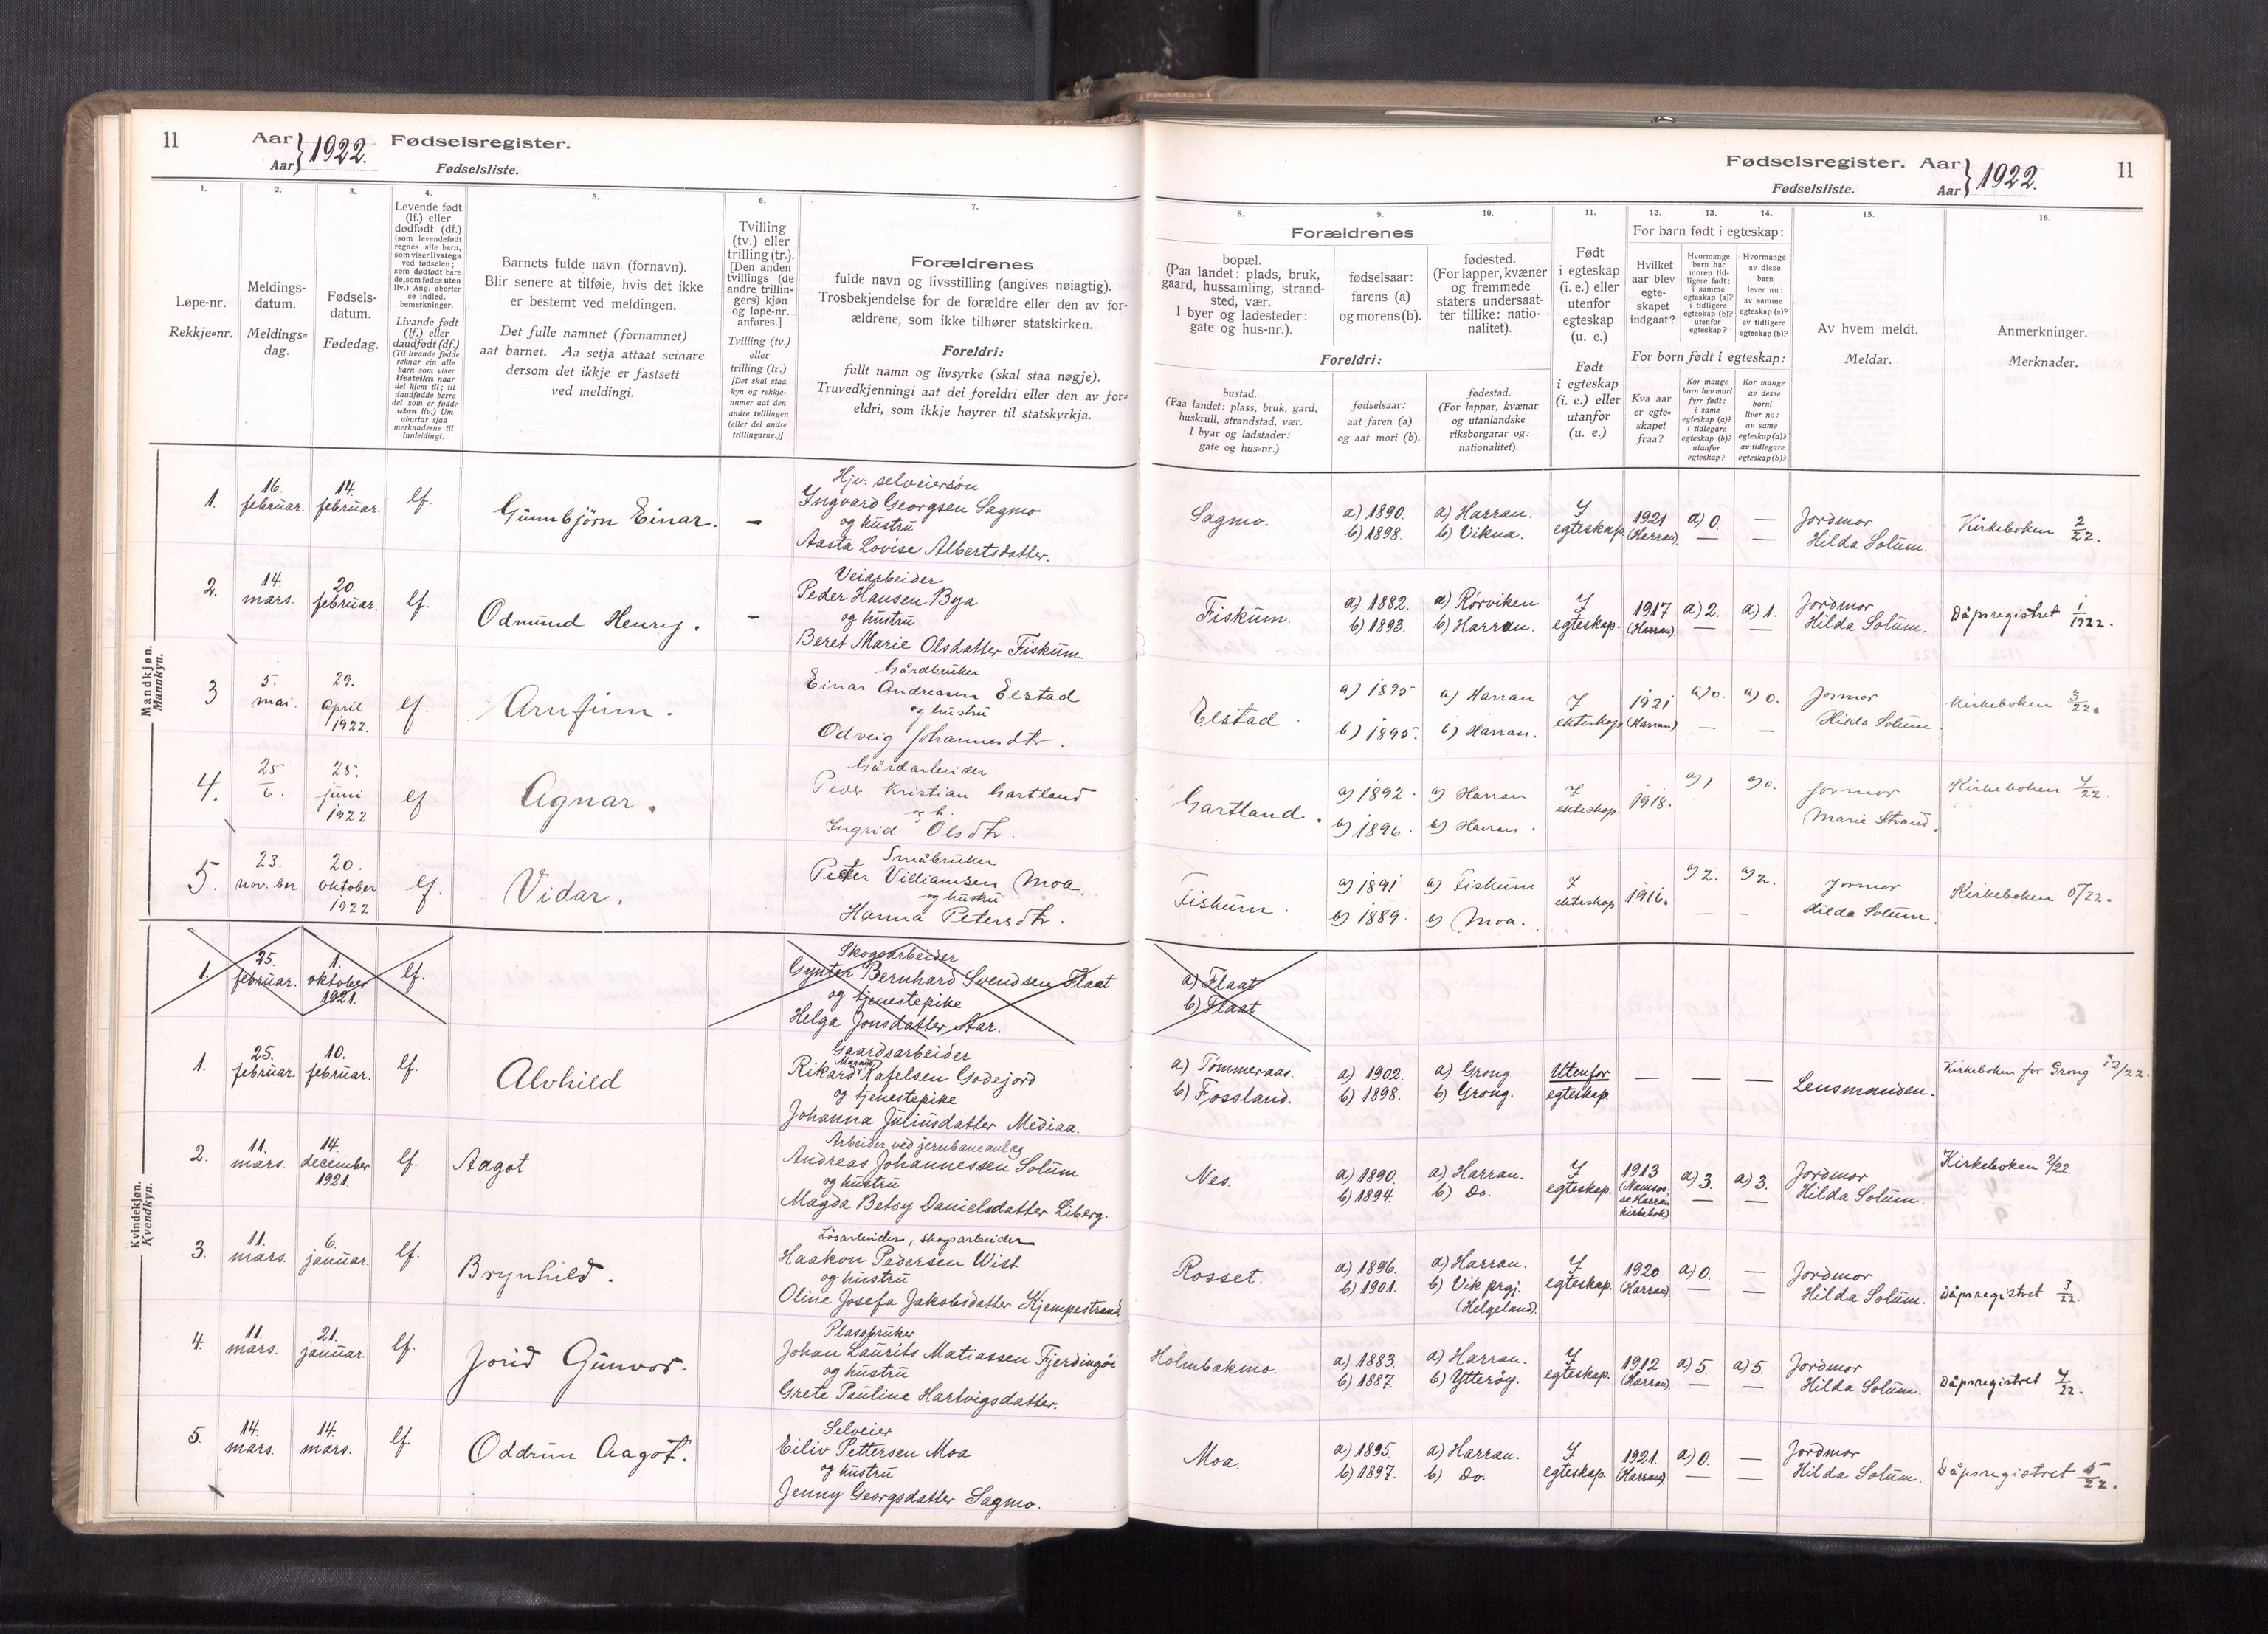 11
Aar
Aar } 1922.
Fødselsregister.
Fødselsliste.
1.
Løpe-nr.
Rekkje=nr.
2.
Meldings-
datum.
Meldings=
dag.
3.
Fødsels-
datum.
Fødedag.
4.
Levende født
(lf.) eller
dødfødt (df.)
(som levendefødt
regnes alle barn,
som viser livstegn
ved fødselen;
som dødfødt bare
de, som fødes uten
liv.) Ang. aborter
se indled.
bemerkninger.
Livande født
(lf.) eller
daudfødt (df.)
(Til livande fødde
reknar ein alle
barn som viser
livsteikn naar
dei kjem til; til
daudfødde berre
dei som er fødde
utan liv.) Um
abortar sjaa
merknaderne til
innleidingi.
5.
Barnets fulde navn (fornavn).
Blir senere at tilføie, hvis det ikke
er bestemt ved meldingen.
Det fulle namnet (fornamnet)
aat barnet. Aa setja attaat seinare
dersom det ikkje er fastsett
ved meldingi.
6.
Tvilling
(tv.) eller
trilling (tr.).
[Den anden
tvillings (de
andre trillin-
gers) kjøn
og løpe-nr.
anføres.]
Tvilling (tv.)
eller
trilling (tr.)
[Det skal staa
kyn og rekkje-
numer aat den
andre tvillingen
(eller dei andre
trillingarne.)]
7.
Forældrenes
fulde navn og livsstilling (angives nøiagtig).
Trosbekjendelse for de forældre eller den av for-
ældrene, som ikke tilhører statskirken.
Foreldri:
fullt namn og livsyrke (skal staa nøgje).
Truvedkjenningi aat dei foreldri eller den av for=
eldri, som ikkje høyrer til statskyrkja.
Mandkjøn.
Mannkyn.
1.
16.
februar.
14.
februar.
lf.
Gunnbjörn Einar.
—
Hjv. selveiersön
Ingvard Georgsen Sagmo
og hustru
Aasta Lovise Albertsdatter.
2.
14.
mars.
20.
februar.
lf.
Odmund Henry.
—
Veiarbeider
Peder Hansen Bya
og hustru
Beret Marie Olsdatter Fiskum.
3
5.
mai.
29.
april
1922.
lf.
Arnfinn.
Gårdbruker
Einar Andreasen Elstad
og hustru
Odveig Johannesdtr.
4.
25
6.
25.
juni
1922
lf.
Agnar.
Gårdarbeider
Peder Kristian Gartland
og h.
Ingrid Olsdtr.
5.
23.
nov.ber
20.
oktober
1922
lf.
Vidar.
Småbruker
Peter Villiamsen Moa.
og hustru
Hanna Petersdtr.
Kvindekjøn.
Kvendkyn.
1.
25.
februar.
1.
oktober
1921.
lf.
Skogsarbeider
Gynter Bernhard Svendsen Flaat
og tjenestepike
Helga Jonsdatter Aar.
1.
25.
februar.
10.
februar.
lf.
Alvhild
Gaardsarbeider
Rikard Magnus Rafelsen Godejord
og tjenestepike
Johanna Juliusdatter Mediaa.
2.
11.
mars.
14.
december
1921.
lf.
Aagot
Arbeider ved jernbaneanlag
Andreas Johannessen Solum
og hustru
Magda Betsy Danielsdatter Liberg.
3.
11.
mars.
6.
januar.
lf.
Brynhild.
Lösarbeider, skogsarbeider
Haakon Pedersen Wist
og hustru
Oline Josefa Jakobsdatter Kjempestrand.
4.
11.
mars.
21.
januar.
lf.
Jorid Gunvor.
Plassbruker
Johan Laurits Matiassen Fjerdingöi
og hustru
Grete Pauline Hartvigsdatter.
5.
14.
mars.
14.
mars.
lf.
Oddrun Aagot.
Selveier
Eiliv Pettersen Moa
og hustru
Jenny Georgsdatter Sagmo.
Fødselsregister. Aar
Fødselsliste. Aar } 1922.
11
8.
Forældrenes
bopæl.
(Paa landet: plads, bruk,
gaard, hussamling, strand-
sted, vær.
I byer og ladesteder:
gate og hus-nr.).
Foreldri:
bustad.
(Paa landet: plass, bruk, gard,
huskrull, strandstad, vær.
I byar og ladstader:
gate og hus=nr.)
9.
fødselsaar:
farens (a)
og morens (b).
fødselsaar:
aat faren (a)
og aat mori (b).
10.
fødested.
(For lapper, kvæner
og fremmede
staters undersaat-
ter tillike: natio-
nalitet).
fødestad.
(For lappar, kvænar
og utanlandske
riksborgarar og:
nationalitet).
11.
Født
i egteskap
(i. e.) eller
utenfor
egteskap
(u. e.)
Født
i egteskap
(i. e.) eller
utanfor
(u. e.)
12.
For barn født i egteskap:
Hvilket
aar blev
egte-
skapet
indgaat?
For born født i egteskap:
Kva aar
er egte=
skapet
fraa?
13.
Hvormange
barn har
moren tid-
ligere født:
i samme
egteskap (a)?
i tidligere
egteskap (b)?
utenfor
egteskap?
Kor mange
born hev mori
fyrr født:
i same
egteskap (a)?
i tidlegare
egteskap (b)?
utanfor
egteskap?
14.
Hvormange
av disse
barn
lever nu:
av samme
egteskap (a)?
av tidligere
egteskap (b)?
Kor mange
av desse
borni
liver no:
av same
egteskap (a)?
av tidlegare
egteskap (b)?
15.
Av hvem meldt.
Meldar.
16.
Anmerkninger.
Merknader.
Sagmo.
a) 1890.
b) 1898.
a) Harran.
b) Vikna.
I
egteskap.
1921
(Harran)
a) 0.
—
—
—
Jordmor
Hilda Solum.
Kirkeboken 2/22.
Fiskum.
a) 1882.
b) 1893.
a) Rörviken
b) Harran.
I
egteskap.
1917
(Harran).
a) 2.
—
a) 1.
—
Jordmor
Hilda Solum.
Dåpsregistret 1/1922.
Elstad.
a) 1895
b) 1895.
a) Harran
b) Harran.
I
ekteskap
1921
(Harran)
a) 0.
—
a) 0.
—
Jormor
Hilda Solum
Kirkeboken 3/22.
Gartland.
a) 1892.
b) 1896.
a) Harran
b) Harran.
I
ekteskap.
1918.
a) 1
a) 0.
Jormor
Marie Strand.
Kirkeboken 4/22.
Fiskum.
a) 1891
b) 1889.
a) Fiskum
b) Moa.
I
ekteskap
1916.
a) 2.
—
a) 2.
—
Jormor
Hilda Solum.
Kirkeboken 5/22.
a) Flaat
b) Flaat
a) Tömmeraas.
b) Fossland.
a) 1902.
b) 1898.
a) Grong.
b) Grong.
Utenfor
egteskap.
—
—
—
Lensmanden.
Kirkeboken for Grong 12/22.
Nes.
a) 1890.
b) 1894.
a) Harran.
b) Do.
I
egteskap.
1913
(Namsos,
se Harran
kirkebok)
a) 3.
—
a) 3.
—
Jordmor
Hilda Solum.
Kirkeboken 2/22.
Rosset.
a) 1896.
b) 1901.
a) Harran.
b) Vik prgj.
(Helgeland).
I
egteskap.
1920
(Harran)
a) 0.
—
—
—
Jordmor
Hilda Solum.
Dåpsregistret 3/22.
Holmbakmo.
a) 1883.
b) 1887.
a) Harran.
b) Ytteröy.
I
egteskap.
1912
(Harran)
a) 5
—
a) 5.
—
Jordmor
Hilda Solum.
Dåpsregistret 4/22.
Moa.
a) 1895.
b) 1897.
a) Harran.
b) Do.
I
egteskap.
1921.
(Harran)
a) 0.
—
—
—
Jordmor
Hilda Solum.
Dåpsregistret 5/22.